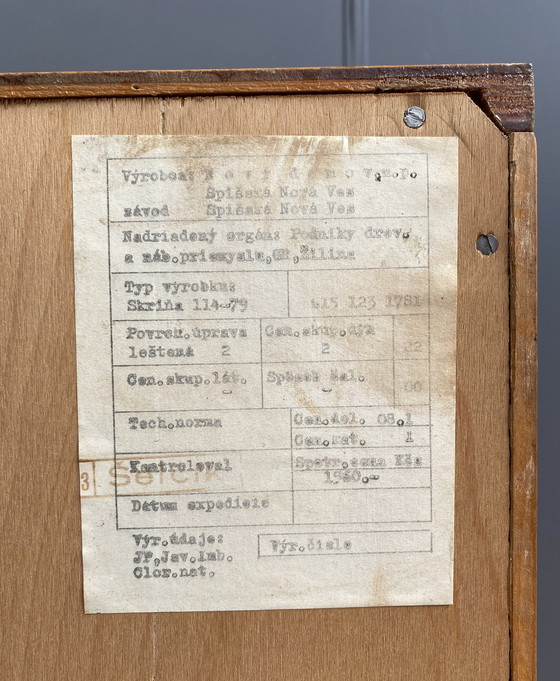 Výrobca: N o v ý d o m o v n.p.
Spišská Nová Ves
závod Spišská Nová Ves
Nadriadený orgán: Podniky drev.
a náb.priemyslu,GR,Žilina
Typ výrobku:
Skriňa 114-79 615 123 1781
Povrch.úprava Cen.skup.dýh
leštená 2 2 22
Cen.skup.lát. Spôsob čal.
- - 00
Tech.norma Cen.del. 08.1
Cen.kat. 1
Kontroloval Spotr.cena Kčs
3 Šefčík 1960.-
Dátum expedície
Výr.údaje: Výr.číslo
JP,Jav.Lub.
Clor.nat.